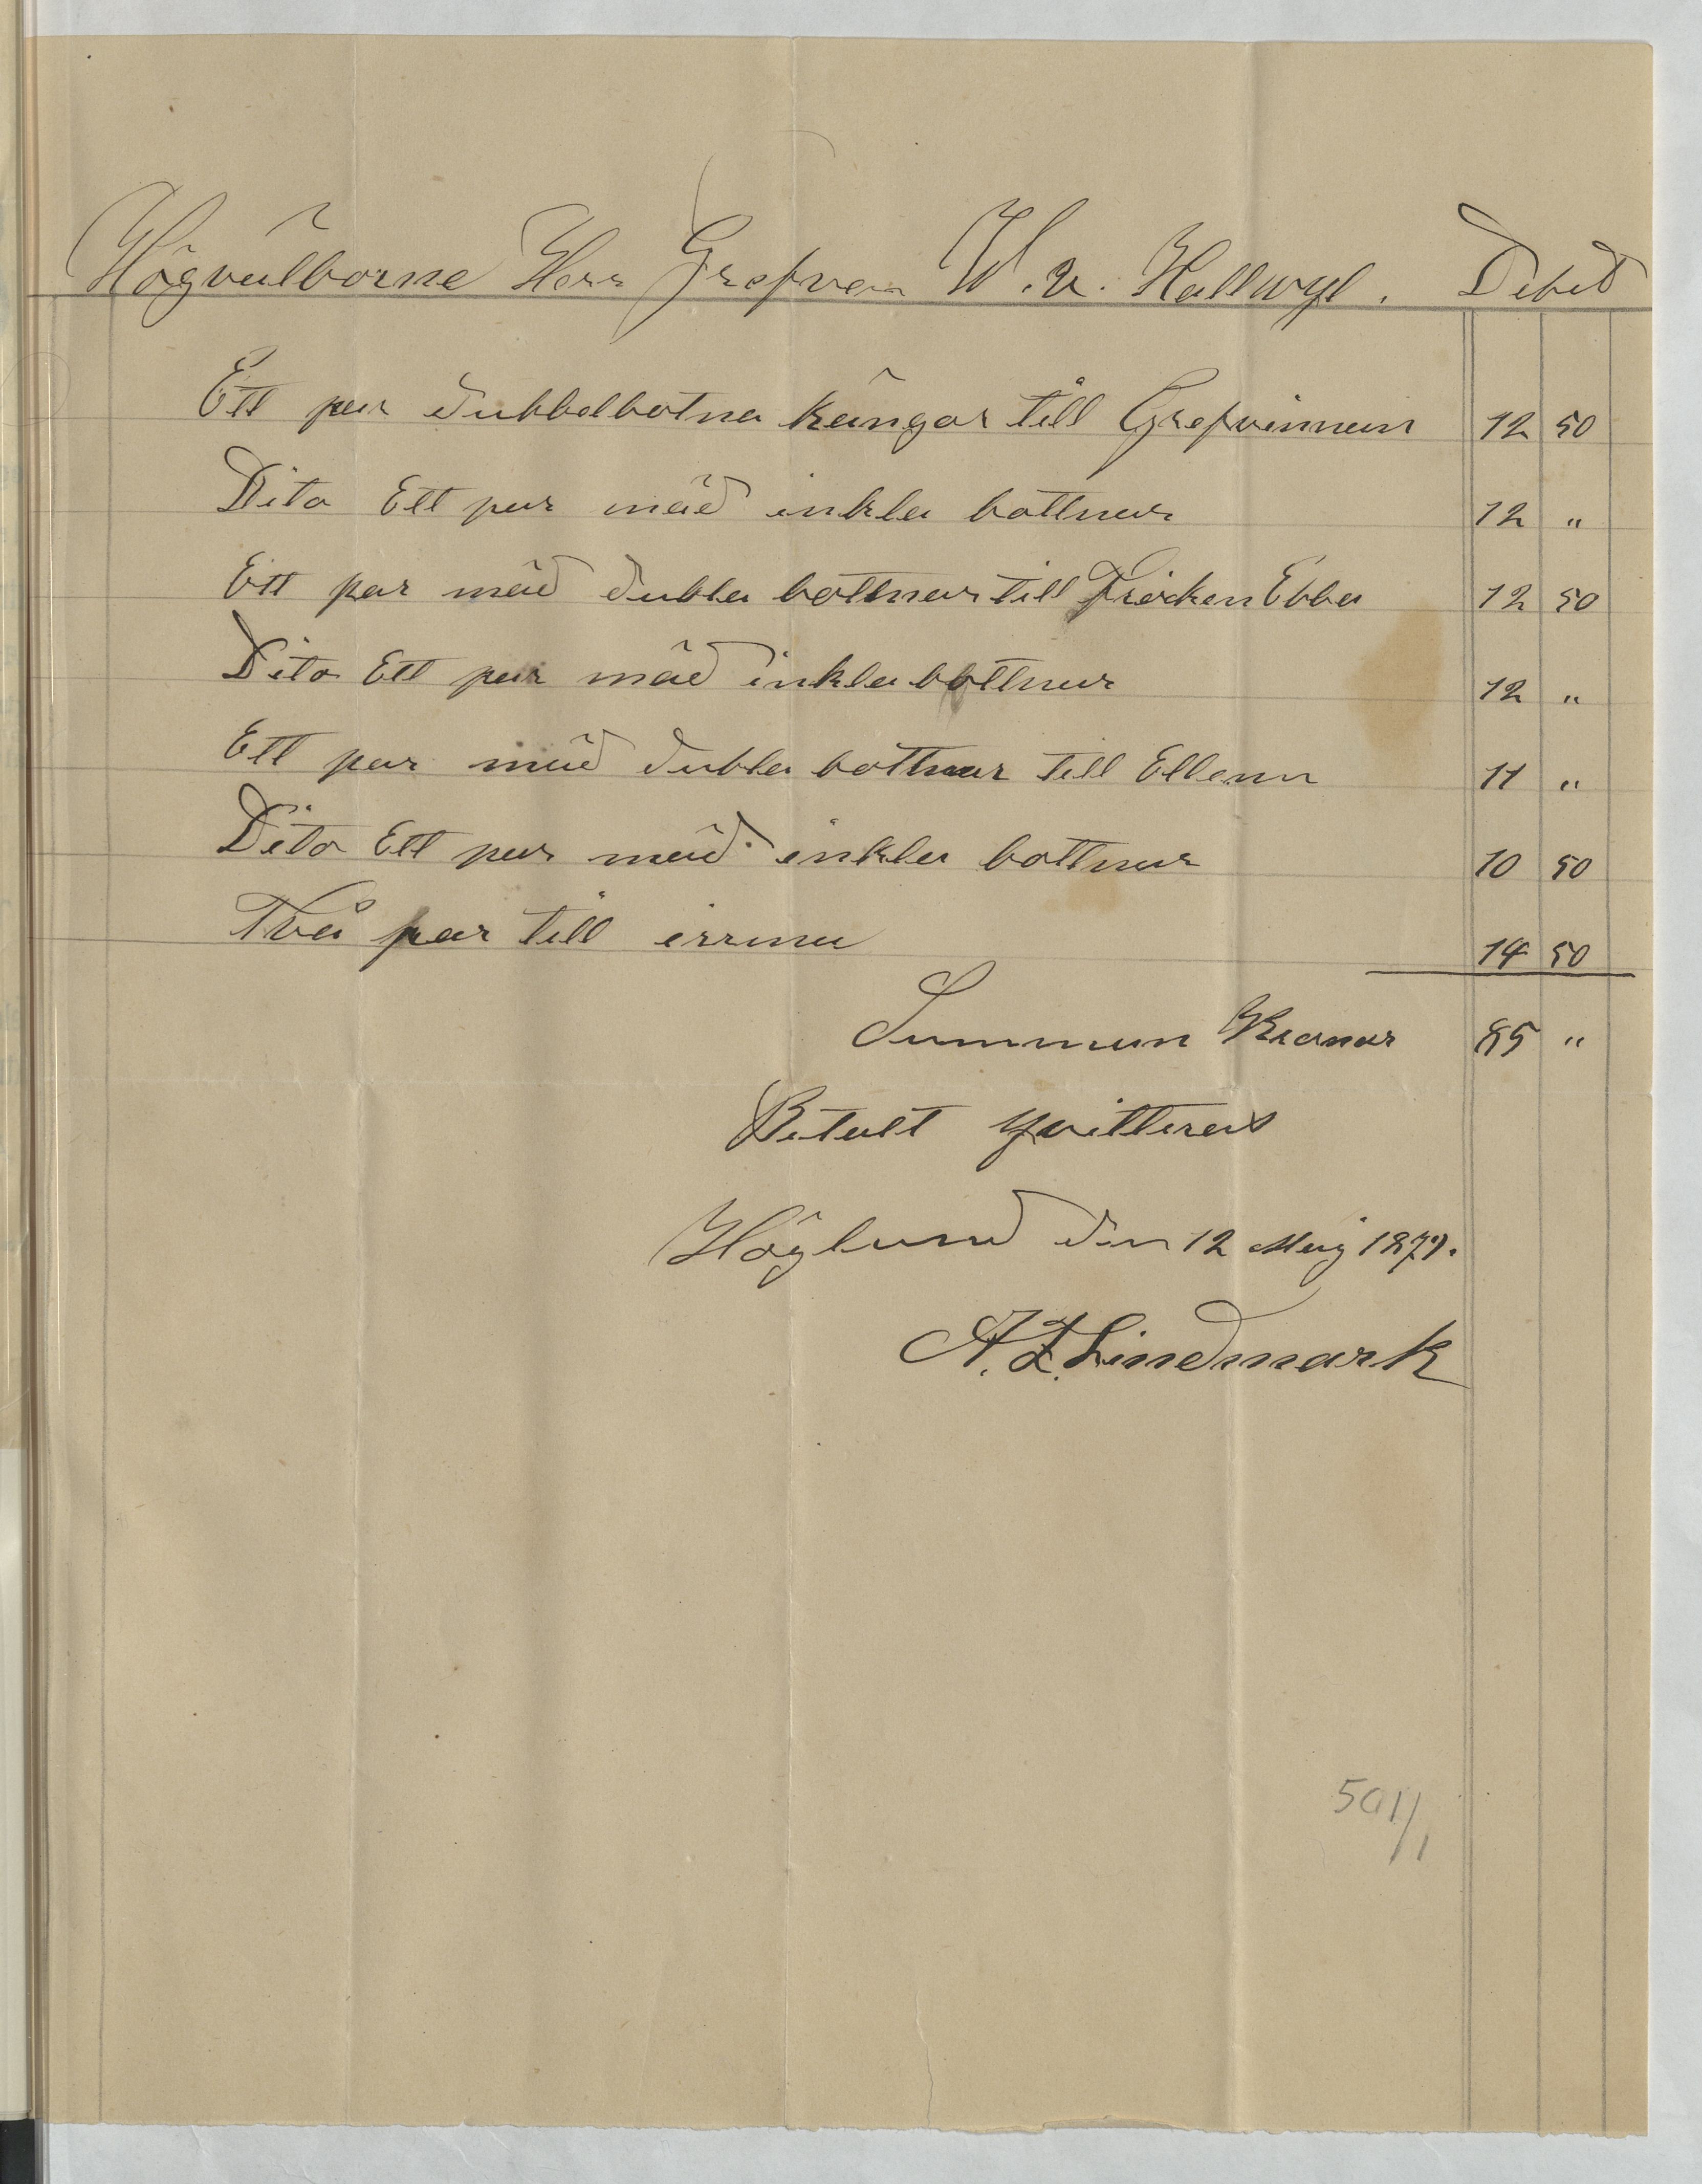 Högvälborne Herr Grefven W. v. Hallwyl. Debet
Ett par dubbelbotna kängor till Grefvinnan 12 50
Dito Ett par mäd inkla bottnar 12 "
Ett par mäd dubla bottnar till Fröcken Ebba 12 50
Dito Ett par mäd inkla bottnar 12 "
Ett par mäd dubla bottnar till Ellenn 11 "
Dito Ett par mäd inkla bottnar 10 50
Två par till irrma 14 50
Summan Kronor 85 "
Betalt qvitteras
Höglund den 12 Maij 1879.
A. Z. Lindmark
501/1